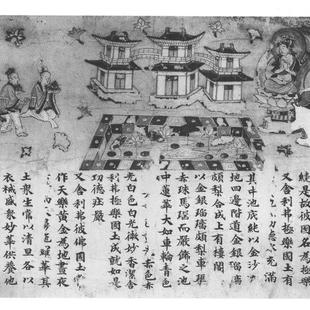 是故彼國名為極樂
又舍利弗極樂國土有
充滿
其中池底純以金沙
地四邊階道金銀瑠璃
頗梨合成上有樓閣
以金銀瑠璃頗梨車璖
赤珠馬瑙而嚴飾之池
中蓮華大如車輪青色
赤色赤
光白色白光微妙香潔舍
利弗極樂國土成就如是
功德莊嚴
又舍利弗彼佛國土
作天樂黃金為地晝夜
華其
土眾生常以清旦各以
衣裓盛眾妙華供養他